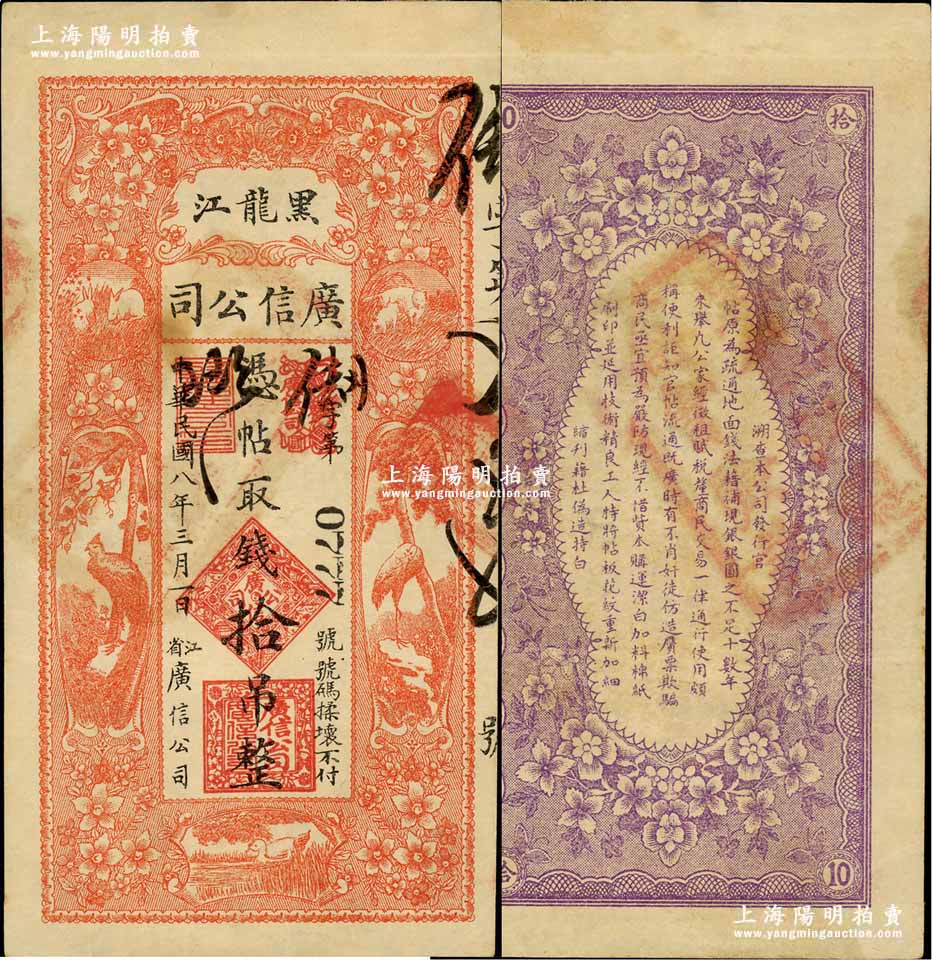 上海陽明拍賣
www.yangmingauction.com
黑龍江
廣信公司
字第
0770
號 號碼揉壞不付
憑帖取錢拾吊整
中華民國八年三月一日
江省
廣信公司
號
拾
溯查本公司發行官
帖原為疏通地面錢法藉補現銀銀圓之不足十數年
來舉凡公家經徵租賦稅釐商民交易一律通行使用頗
稱便利詎知官帖流通既廣時有不肖奸徒仿造贋票欺騙
商民亟宜預為嚴防現經不惜貲本購運潔白加料棉紙
刷印並延用技術精良工人特將帖板花紋重新加細
縮刋藉杜偽造特白
10
上海陽明拍賣
www.yangmingauction.com
上海陽明拍賣
www.yangmingauction.com